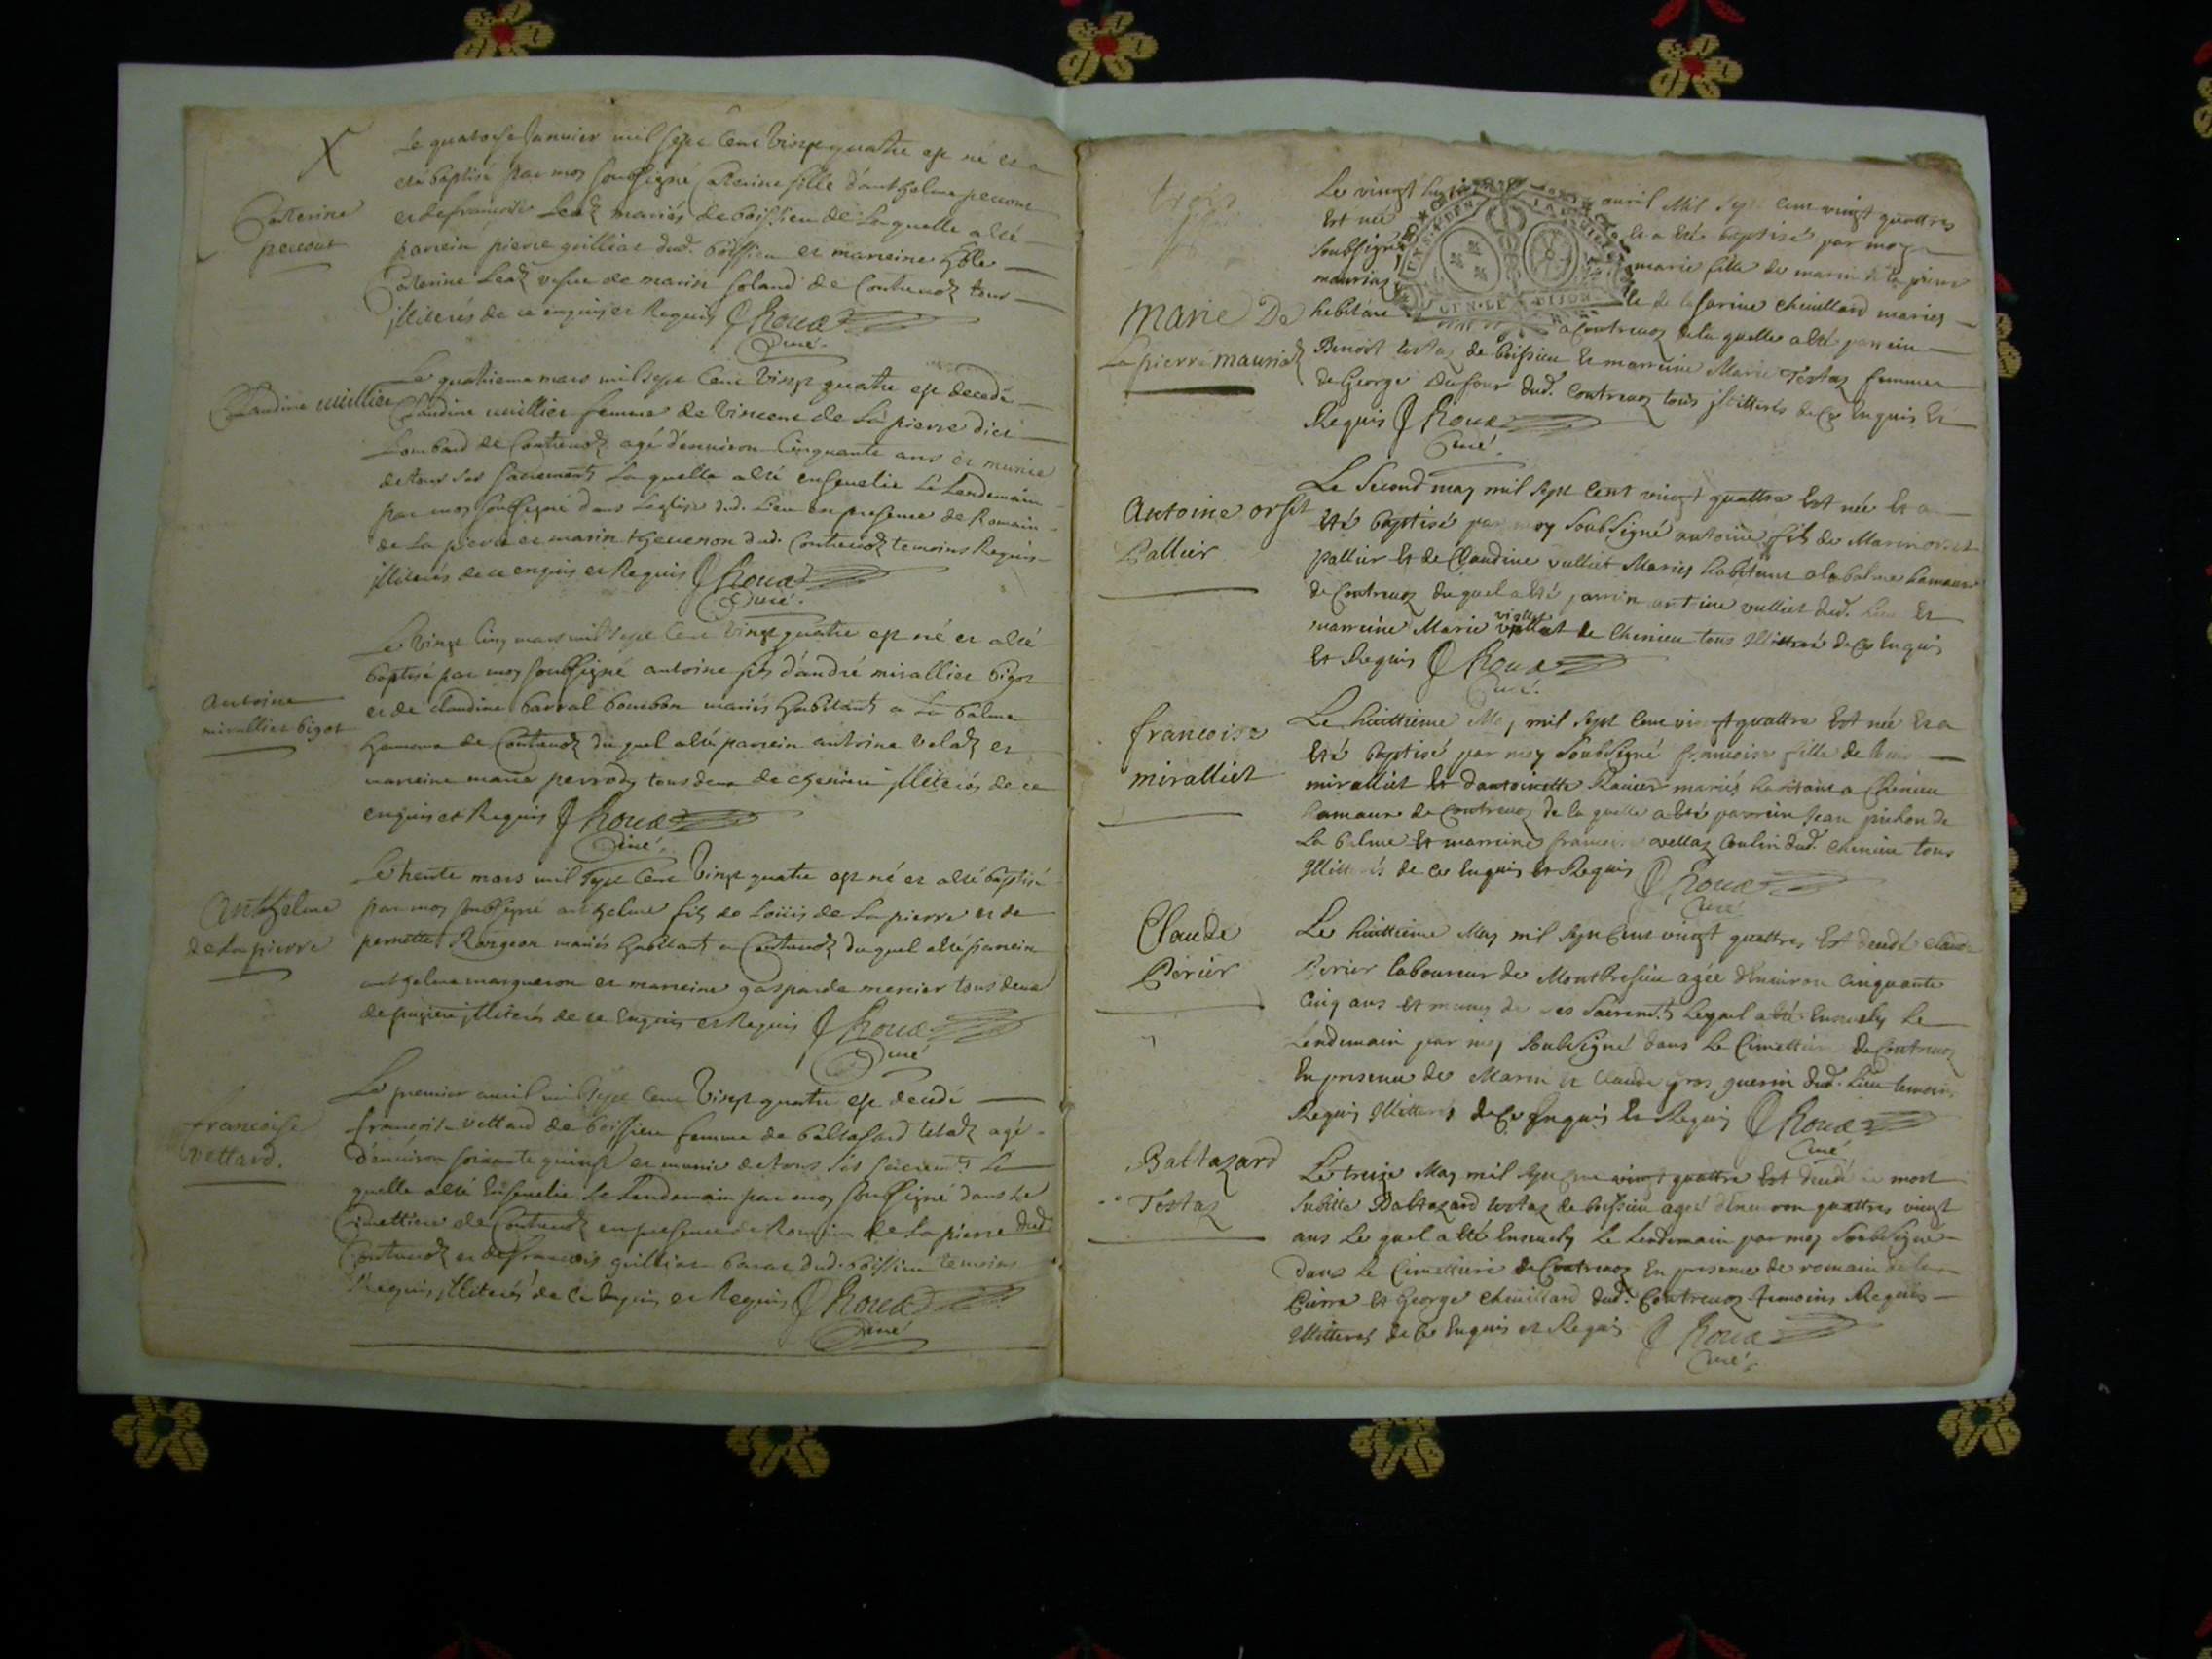 X
Le quatorse Janvier mil sept Cent Vingt quatre est né et a
esté baptisé par moy soubsigné Caterine fille d'anthelme peccout
et de francoise Leaz mariés de boissieu de Laquelle a esté
parrein pierre guilliat dud. boissieu et marreine hble
Caterine Leaz vefve de marin Goland de Contrevoz tous
illiterés de ce enquis et Requis J Roux
Curé.
Caterine
peccout
Le quatrieme mars mil sept Cent Vingt quatre est decedé
Claudine vuillier femme de Vincent de La pierre dict
Lombard de Contrevoz agé d'environ Cinquante ans et munie
de tous ses sacrements Laquelle a esté ensevelie Le Lendemain
par moy soubsigné dans Leglise dud. Lieu en presence de Romain
de La pierre et marin thevenon dud. Contrevoz temoins Requis
illiterés de ce enquis et Requis J Roux
Curé.
Claudine vuillier
Le Vingt Cinq mars mil sept Cent Vingt quatre est né et a esté
baptisé par moy soubsigné antoine fils d'andré mirallier bigot
et de claudine barral bourbon mariés habitants a La balme
hameau de Contrevoz du quel a esté parrein antoine Velaz et
marreine marie perrody tous deux de chenieu illiterés de ce
enquis et Requis J Roux
Curé.
antoine
mirallier bigot
Le trente mars mil sept Cent Vingt quatre est né et a esté baptisé
par moy soubsigné anthelme fils de Loüis de La pierre et de
pernette Rongeon mariés habitants a Contrevoz du quel a esté parrein
anthelme marqueron et marreine gasparde mercier tous deux
de pugieu illiterés de ce Enquis et Requis J Roux
Curé
Anthelme
de La pierre
Le premier avril mil sept Cent Vingt quatre est decedé
francoise Vettard de boissieu femme de baltasard tetaz agé
d'environ soixante quinze et munie de tous ses sacrements La
quelle a esté Ensevelie Le Lendemain par moy soubsigné dans Le
Cimettiere de Contrevoz en presence de Romain de La pierre dud.
Contrevoz et de francois guilliat baraz dud. boissieu temoins
Requis illiterés de Ce Enquis et Requis J Roux
Curé
francoise
Vettard.
trois
Le vingt avril Mil Sept cent vingt quattres
Est née et a Esté baptisé par moy
Soubsigné marie fille de marin de la pierre
mauriaz et de Caterine Chevillard mariés
habitant a Contrevoz de la quelle a esté parrein
Benoit testaz de boissieu Et marreine Marie Testaz femme
de George Dufour dud. Contrevoz tous illitterés de Ce Enquis Et
Requis J Roux
Curé.
GEN. LE DIJON
Marie De
La pierre mauriaz
Le Second may mil sept Cent vingt quattre Est née Et a
Esté baptisé par moy Soubsigné antoine fils de Marin orset
Pallier Et de Claudine vulliet Mariés habitant a la balme hameau
de Contrevoz du quel a esté parrein antoine vulliet dud. Lieu Et
marreine Marie viollet de Chenieu tous illitteré de Ce Enquis
Et Requis J Roux
Curé.
Antoine orset
Pallier
Le huittieme May mil sept Cent vingt quattre Est née Et a
Esté baptisé par moy Soubsigné francoise fille de
miralliet Et dantoinette Ravier mariés habitant a Chenieu
hamaux de Contrevoz de la quelle a esté parrein Jean pichon de
La balme Et marreine francoise vellaz Coulin dud. Chenieu tous
Illitterés de Ce Enquis Et Requis J Roux
Curé
francoise
miralliet
Le huittieme May mil sept Cent vingt quattres Est decedé Claude
Perier laboureur de Montbresieu agée d'environ Cinquante
Cinq ans Et muny de ses Sacremts Lequel a été Ensevely Le
Lendemain par moy Soubsigné dans Le Cimettiere de Contrevoz
En presence de Marin et Claude gros guerin dud. Lieu temoins
Requis Illitterés de Ce Enquis Et Requis J Roux
Curé
Claude
Périer
Le treize May mil sept Cent vingt quattre Est decedé de mort
Subitte Baltazard testaz de boissieu agée d'environ quattres vingt
ans Le quel a Eté Ensevely Le Lendemain par moy Soubsigné
Dans Le Cimettiere de Contrevoz En presence de romain de la
Pierre Et George Chevillard dud. Contrevoz temoins Requis
Illitterés de Ce Enquis et Requis J Roux
Curé.
Baltazard
Testaz